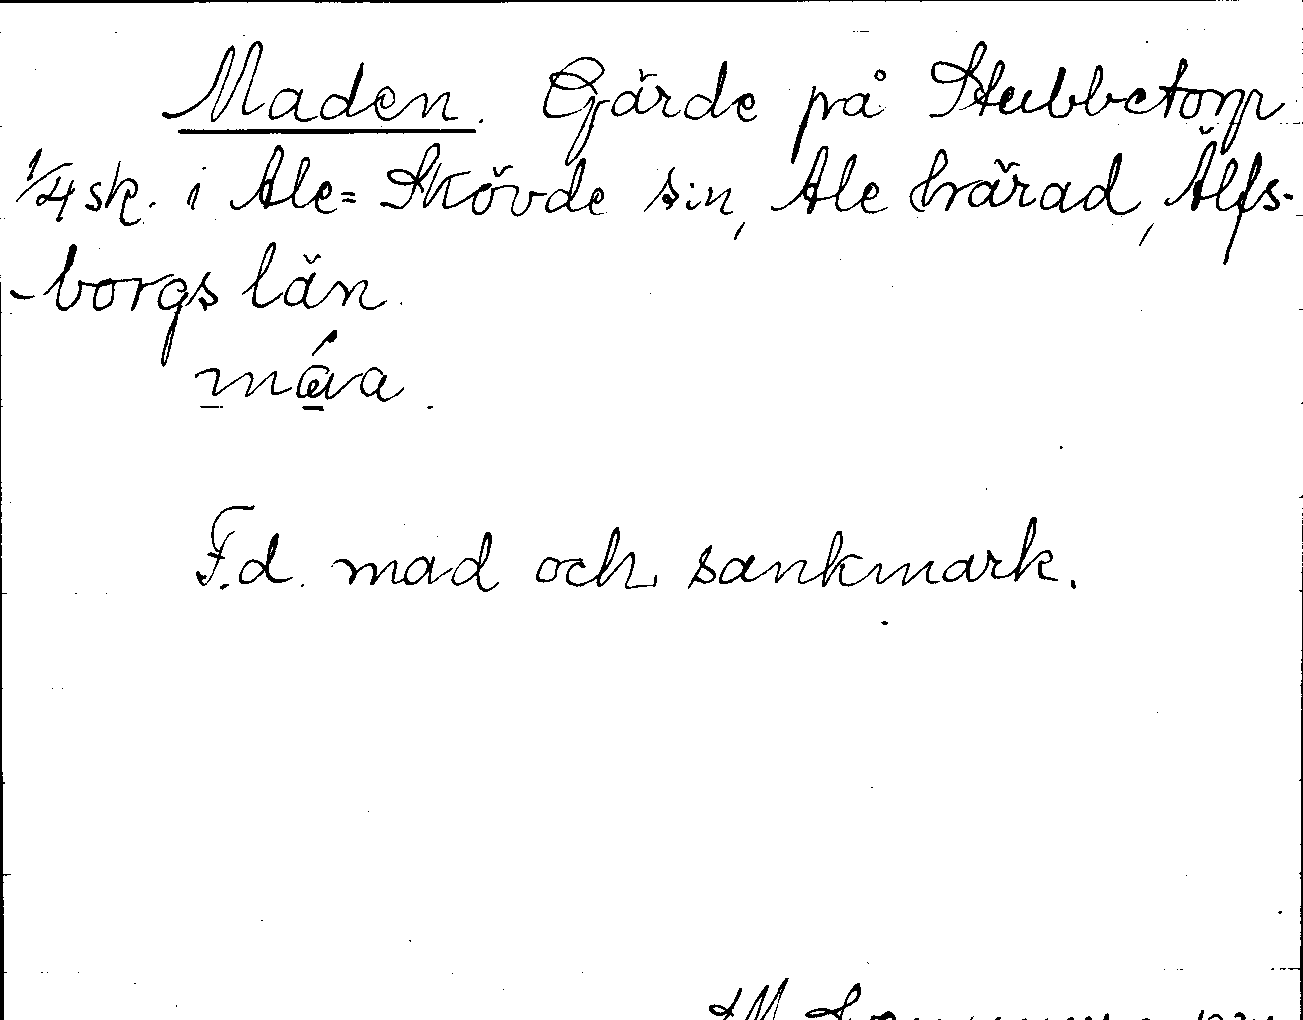 Maden. Gärde på Stubbetorp
1/4 sk. i Ale-Skövde s:n, Ale härad, Älfs-
-borgs län.
máva.
F.d. mad och sankmark.